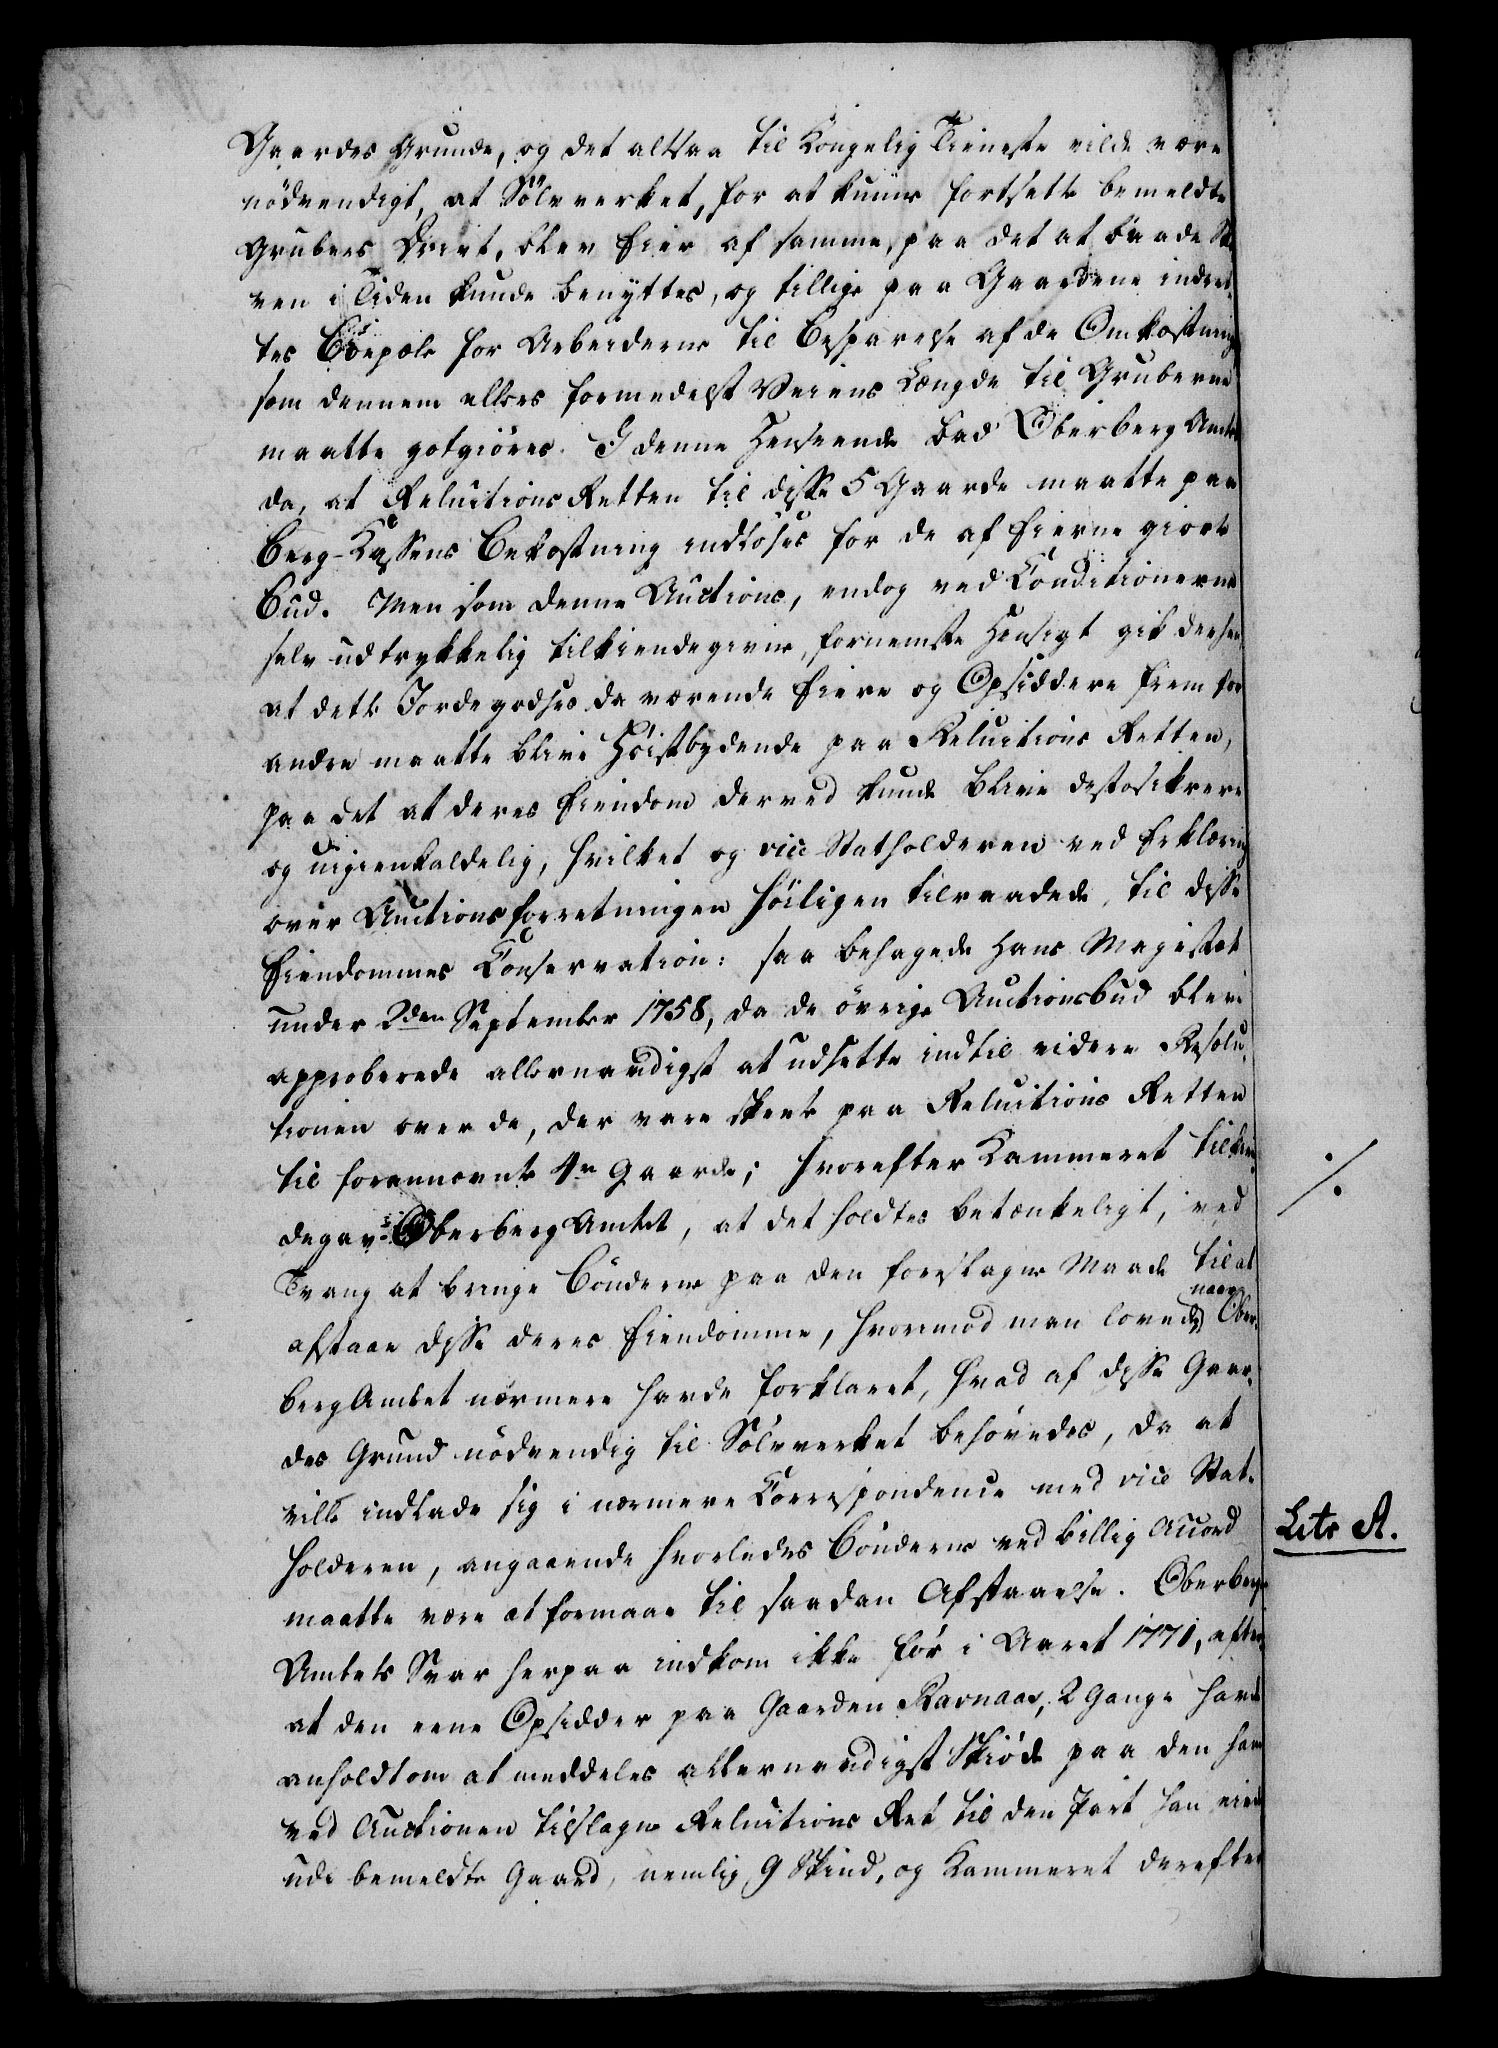 Gaardes Grunde, og det altsaa til Kongelig Tieneste vilde være
nödvendigt, at Sölvverket, for at kunne fortsætte bemeldte
Grubers Drivt, blev Eier af samme, paa det at baade
ven i Tiden kunde benyttes, og tillige paa Gaardene indret-
tes Boepæle for Arbeiderne til Besparelse af de Omkostning
som dennem ellers formedelst Veiens Længde til Gruberne
maatte gotgiöres. I denne Henseende bad Oberberg Amtet
da, at Reluitions Retten til disse 5 Gaarde maatte paa
Berg-Kassens Bekostning indlöses for de af Eierne giorte
Bud. Men som denne Auctions, endog ved Conditionerne
selv udtrykkelig tilkiendegivne, fornemste Hensigt gik derhen
at dette Jordegodses da værende Eiere og Opsiddere frem for
andre maatte blive Höistbydende paa Reluitions Retten,
paa det at deres Eiendom derved kunde blive destosikrere
og uigienkaldelig, hvilket og vice Statholderen ved Erklæring
over Auctionsforretningen höiligen tilraadede, til disse
Eiendommes Conservation: saa behagede Hans Majestæt
under 2den September 1758, da de övrige Auctionsbud bleve
approberede allernaadigst at udsette indtil videre Resolu-
tionen over de, der vare skeete paa Reluitions Retten
til forannævnte 4re Gaarde; hvorefter Kammeret tilkien-
degav Oberberg Amtet, at det holdtes betænkeligt, ved
Tvang at bringe Bönderne paa den foreslagne Maade til at
afstaae disse deres Eiendomme, hvorimod man lovede, naar Ober-
bergAmtet nærmere havde forklaret, hvad af disse Gaar-
des Grund nödvendig til Sölvverket behövedes, da at
ville indlade sig i nærmere Correspondence med vice Stat-
holderen, angaaende hvorledes Bönderne ved billig Accord
maatte være at formaae til saadan Afstaaelse. Oberberg-
Amtets Svar herpaa indkom ikke för i Aaret 1771, efter
at den eene Opsidder paa Gaarden Ravnaas, 2 Gange havde
anholdt om at meddeles allernaadigst Skiöde paa den ham
ved Auctionen tilslagne Reluitions Ret til den Part han eiede
udi bemeldte Gaard, nemlig 9 Skind, og Kammeret derefter
./.
Litr A.